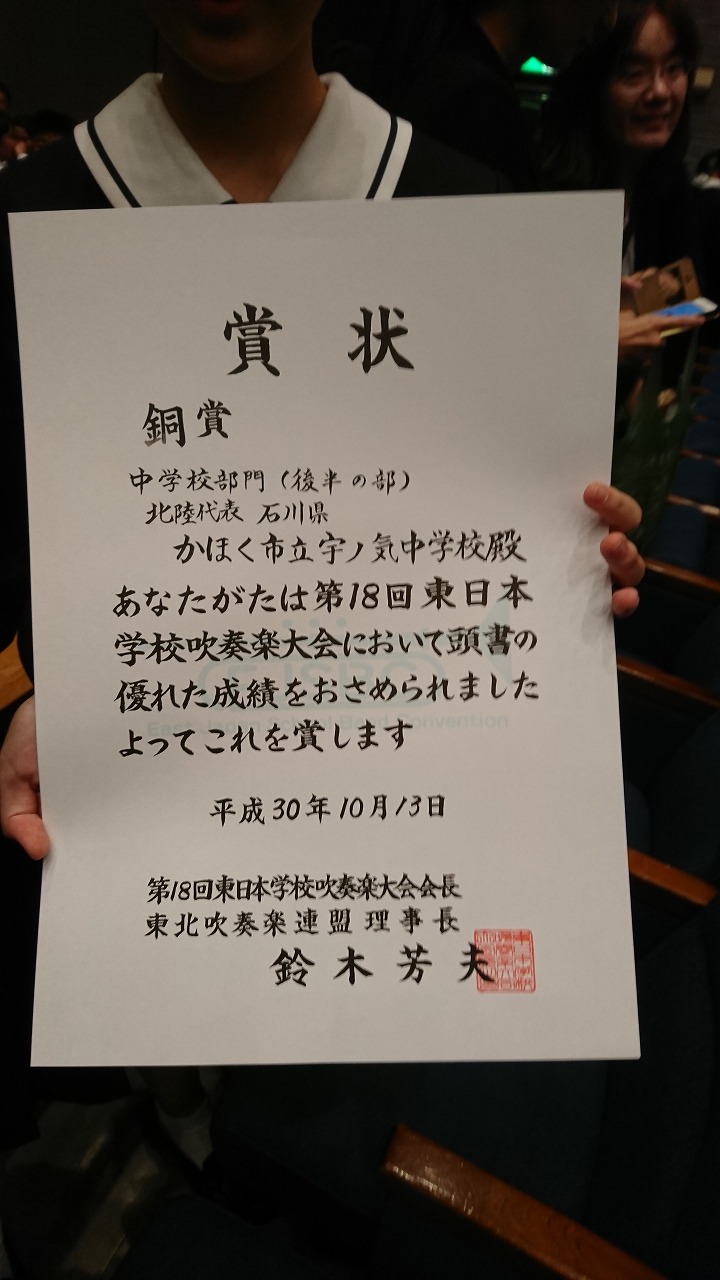 賞状
銅賞
中学校部門（後半の部）
北陸代表 石川県
かほく市立宇ノ気中学校殿
あなたがたは第18回東日本
学校吹奏楽大会において頭書の
優れた成績をおさめられました
よってこれを賞します
East Japan School Band Convention
平成30年10月13日
第18回東日本学校吹奏楽大会会長
東北吹奏楽連盟理事長
鈴木芳夫